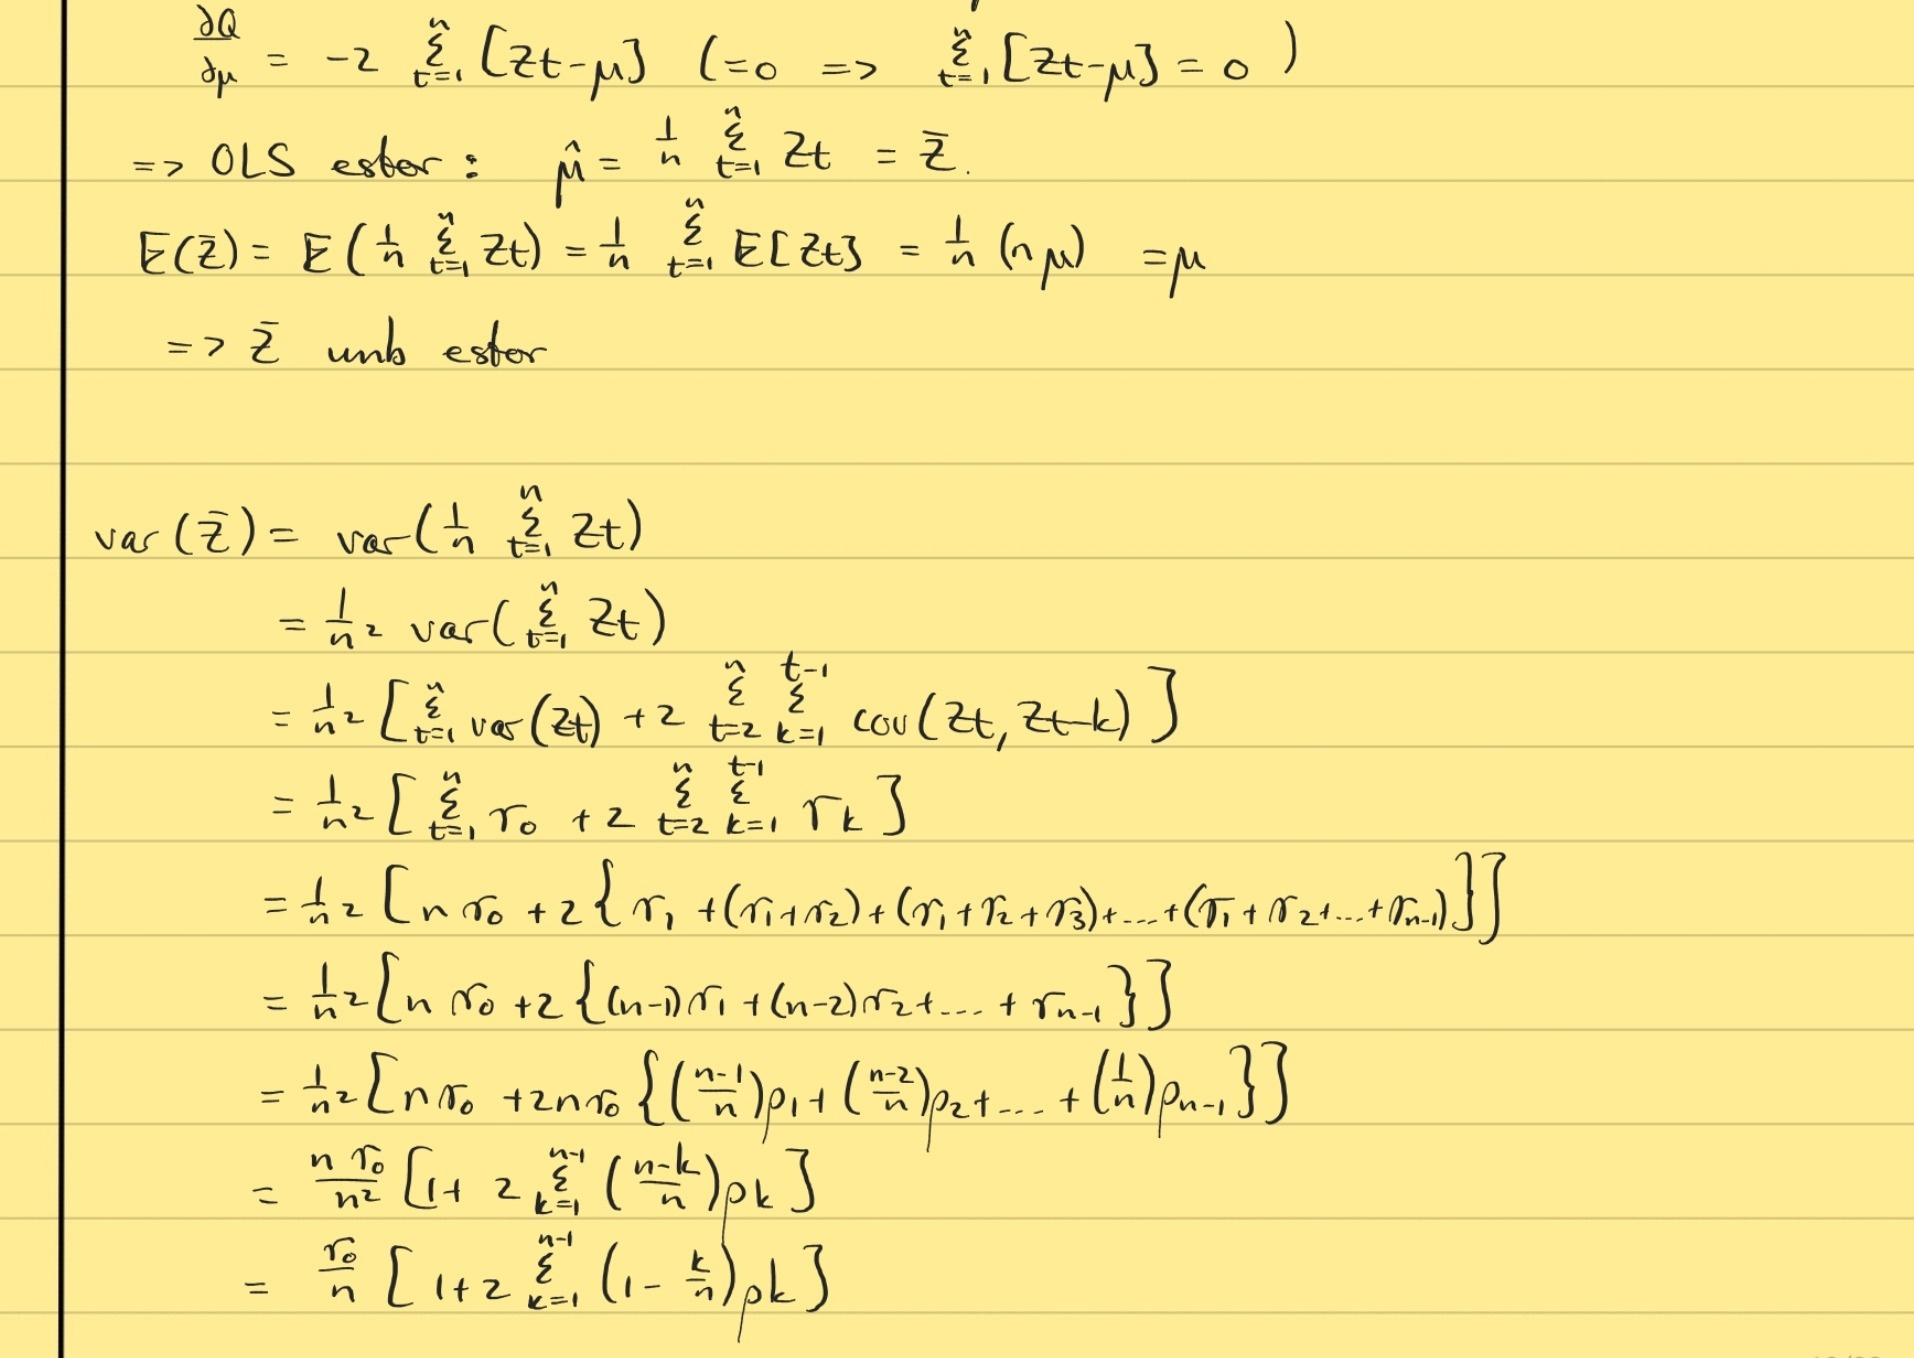 ∂Q/∂μ = -2 Σ_{t=1}^{n} [Zt-μ] (=0 => Σ_{t=1}^{n} [Zt-μ] = 0 )
=> OLS estor : μ̂ = 1/n Σ_{t=1}^{n} Zt = Z̄.
E(Z̄) = E(1/n Σ_{t=1}^{n} Zt) = 1/n Σ_{t=1}^{n} E[Zt] = 1/n (nμ) = μ
=> Z̄ unb estor
var(Z̄) = var(1/n Σ_{t=1}^{n} Zt)
= 1/n² var(Σ_{t=1}^{n} Zt)
= 1/n² [Σ_{t=1}^{n} var(Zt) + 2 Σ_{t=2}^{n} Σ_{k=1}^{t-1} cov(Zt, Zt-k)]
= 1/n² [Σ_{t=1}^{n} γ₀ + 2 Σ_{t=2}^{n} Σ_{k=1}^{t-1} γk]
= 1/n² [nγ₀ + 2{γ₁ + (γ₁+γ₂) + (γ₁+γ₂+γ₃) + .... + (γ₁+γ₂+...+γn-1)}]
= 1/n² [nγ₀ + 2{(n-1)γ₁ + (n-2)γ₂ + .... + γn-1}]
= 1/n² [nγ₀ + 2nγ₀{((n-1)/n)ρ₁ + ((n-2)/n)ρ₂ + .... + (1/n)ρn-1}]
= nγ₀/n² [1 + 2 Σ_{k=1}^{n-1} ((n-k)/n)ρk]
= γ₀/n [1 + 2 Σ_{k=1}^{n-1} (1 - k/n)ρk]